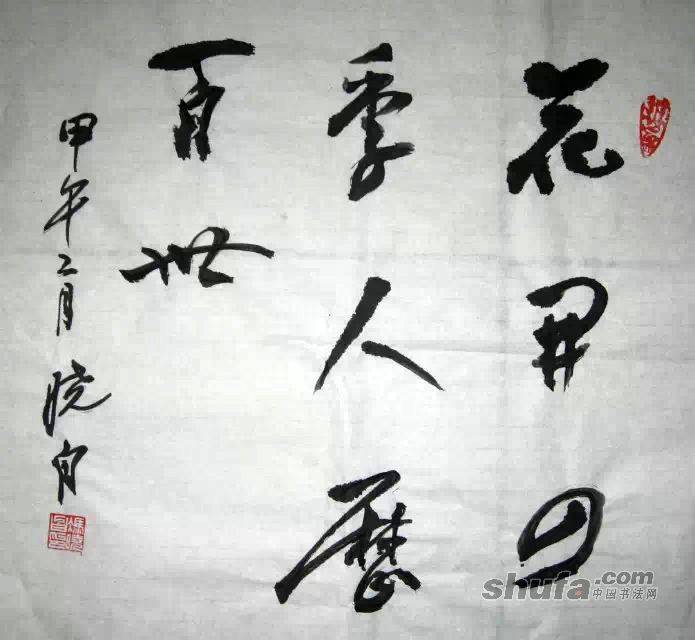 花開四
季人歷
百世
甲午二月 晓
shufa.com
中国书法网